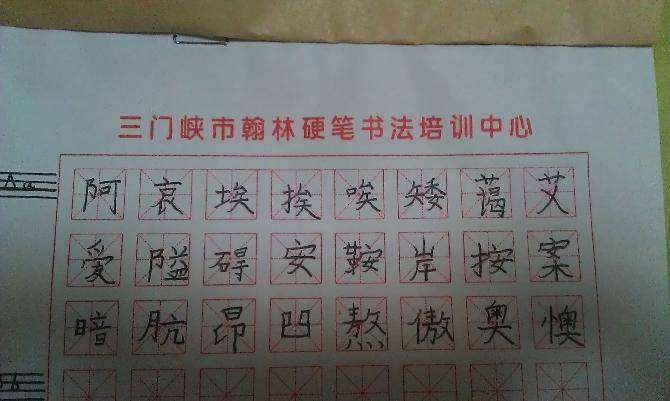 三门峡市翰林硬笔书法培训中心
Aa
阿哀埃挨唉矮蔼艾
爱隘碍安鞍岸按案
暗肮昂凹熬傲奥懊